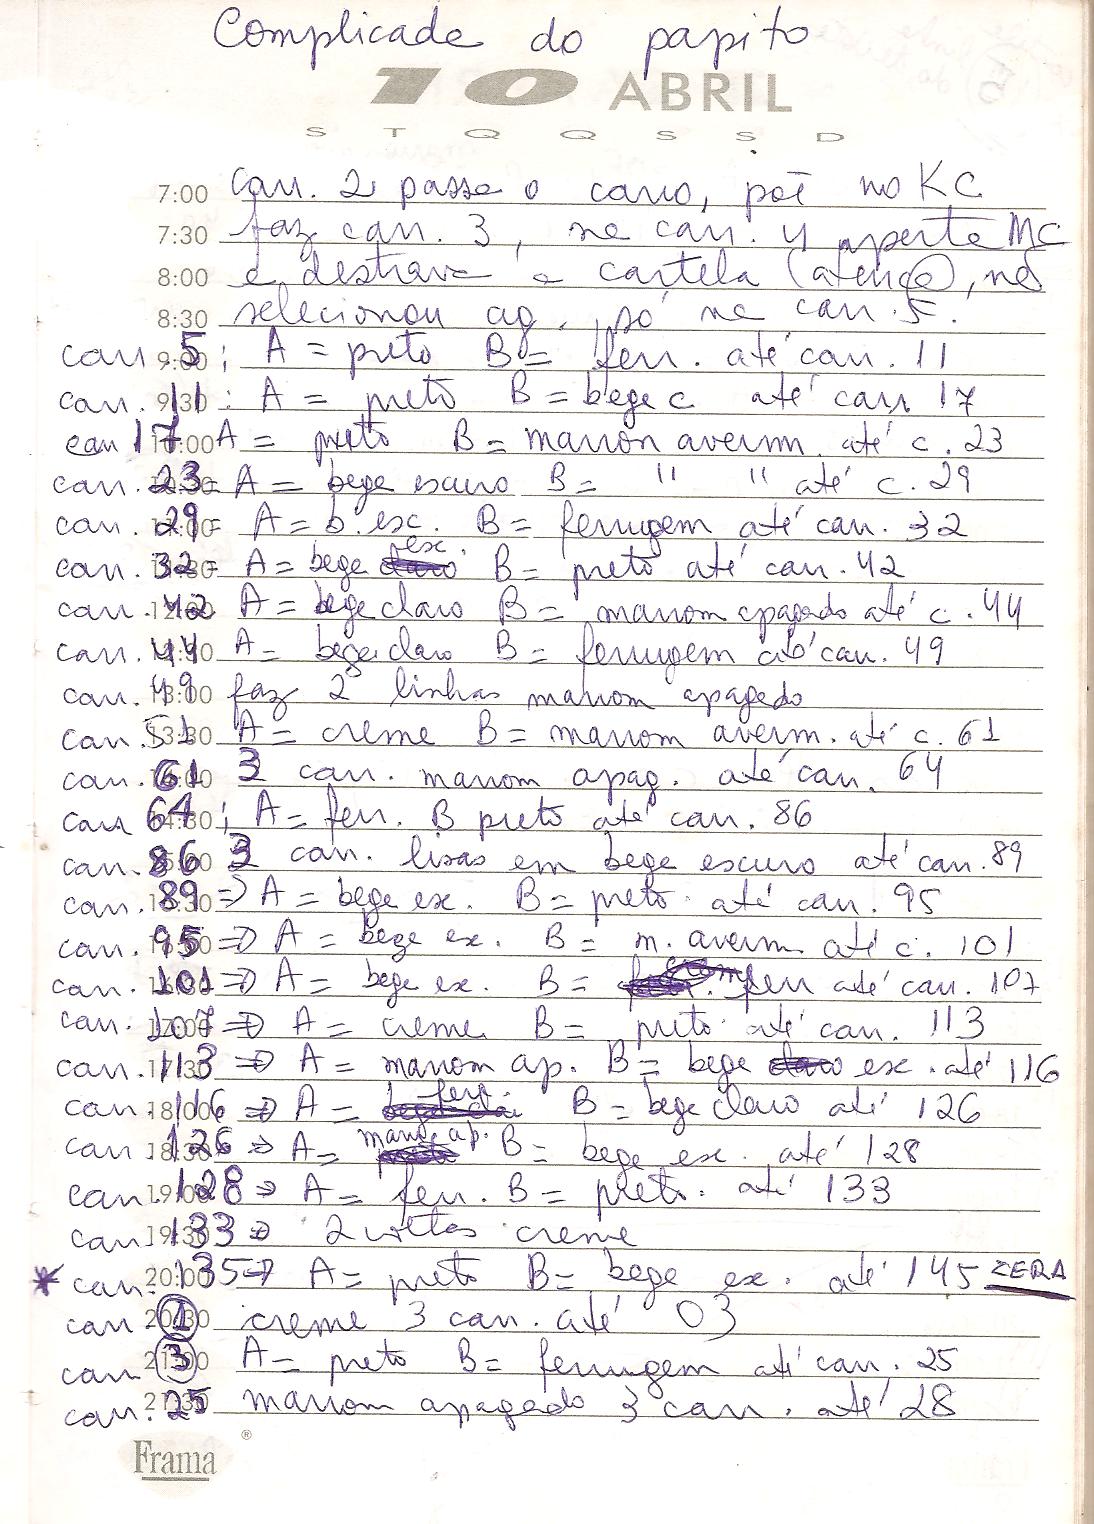 Complicade do papito
10 ABRIL
S T Q Q S S D
7:00 can. 2 passe o carro, põe no KC
7:30 faz can. 3, na can. 4 aperta MC
8:00 e destrava a cartela (atenção), não
8:30 selecionou ag., só na can. 5.
9:00 can 5; A = preto B = ferr. até can. 11
9:30 can. 11: A = preto B = bege c até can. 17
can 17 A = preto B = marron averm. até c. 23
can. 23 = A = bege escuro B = " " até c. 29
can. 29 = A = b. esc. B = ferrugem até can. 32
can. 32 = A = bege esc. B = preto até can. 42
can. 42 A = bege claro B = marrom apagado até c. 44
can. 44 A = bege claro B = ferrugem até can. 49
can. 49 faz 2 linhas marrom apagado
can. 51 A = creme B = marrom averm. até c. 61
can. 61 3 can. marrom apag. até can. 64
can 64; A = ferr. B preto até can. 86
can. 86 3 can. lisas em bege escuro até can. 89
can. 89 => A = bege ex. B = preto. até can. 95
can. 95 => A = bege ex. B = m. averm até c. 101
can. 101 => A = bege ex. B = ferr até can. 107
can. 107 => A = creme B = preto. até can. 113
can. 113 => A = marrom ap. B = bege ex. até 116
can. 116 => A = ferr. B = bege claro até 126
can 126 => A = marr. ap. B = bege ex. até 128
can. 128 => A = ferr. B = preto. até 133
can. 133 => 2 voltas creme
* can. 135 => A = preto B = bege ex. até 145 ZERA
can 1 creme 3 can. até 03
can 3 A = preto B = ferrugem até can. 25
can. 25 marrom apagado 3 can. até 28
Frama ®